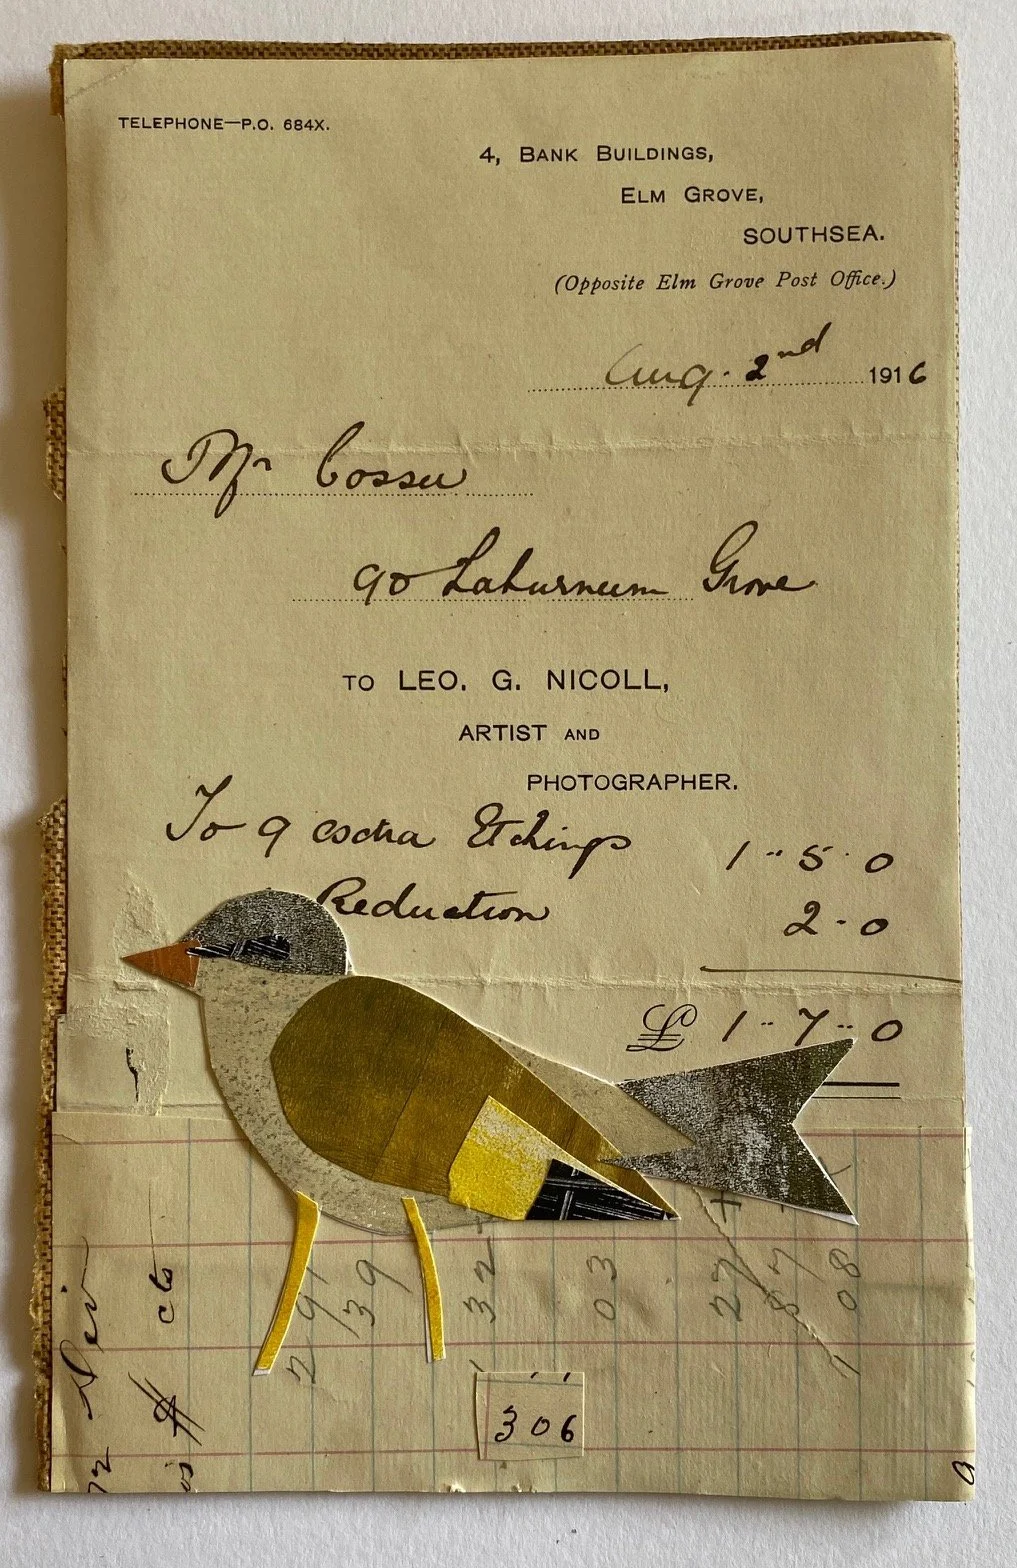 TELEPHONE—P.O. 684X.
4, BANK BUILDINGS,
ELM GROVE,
SOUTHSEA.
(Opposite Elm Grove Post Office.)
Aug. 2nd 1916
Mr
90 Laburnum Grove
TO LEO. G. NICOLL,
ARTIST AND
PHOTOGRAPHER.
To 9 extra Etchings 1 " 5 " 0
Reduction 2 - 0
£ 1 " 7 " 0
306